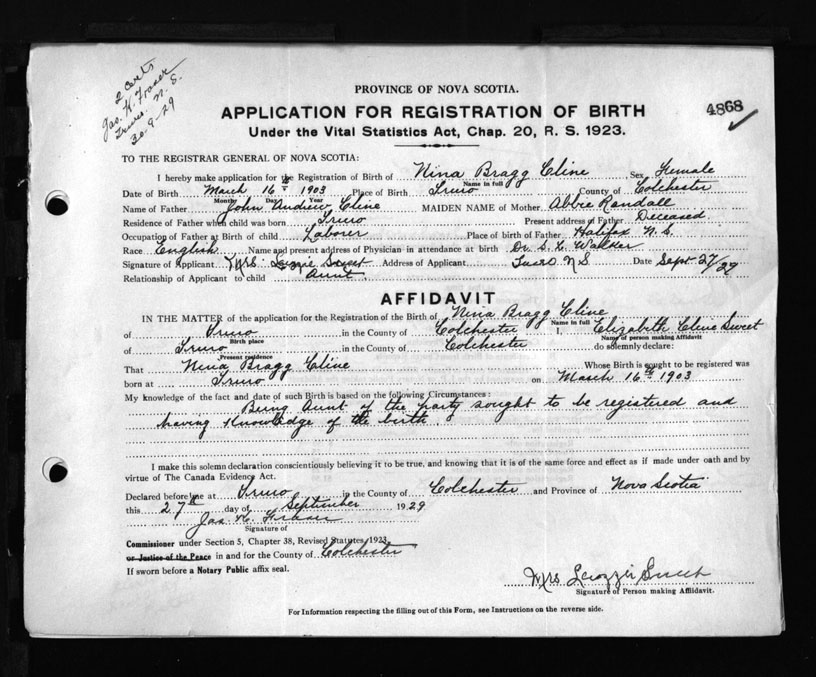 2 Certs
Jas. H. Fraser
Truro N. S.
30-9-29
4868
PROVINCE OF NOVA SCOTIA.
APPLICATION FOR REGISTRATION OF BIRTH
Under the Vital Statistics Act, Chap. 20, R. S. 1923.
TO THE REGISTRAR GENERAL OF NOVA SCOTIA:
I hereby make application for the Registration of Birth of Nina Bragg Cline Sex Female
Name in full
Date of Birth March 16th 1903 Place of Birth Truro County of Colchester
Month Day Year
Name of Father John Andrew Cline MAIDEN NAME of Mother Abbie Randall
Residence of Father when child was born Truro Present address of Father Deceased
Occupation of Father at Birth of child Laborer Place of birth of Father Halifax N. S.
Race English Name and present address of Physician in attendance at birth Dr. S. L. Walker
Signature of Applicant Mrs. Lizzie Sweet Address of Applicant Truro N S Date Sept 27/29
Relationship of Applicant to child Aunt.
AFFIDAVIT
IN THE MATTER of the application for the Registration of the Birth of Nina Bragg Cline
Name in full
of Truro in the County of Colchester I, Elizabeth Cline Sweet
Birth place Name of person making Affidavit
of Truro in the County of Colchester do solemnly declare:
Present residence
That Nina Bragg Cline Whose Birth is sought to be registered was
born at Truro on March 16th 1903
My knowledge of the fact and date of such Birth is based on the following Circumstances:
Being Aunt of the party sought to be registered and
having knowledge of the birth.
I make this solemn declaration conscientiously believing it to be true, and knowing that it is of the same force and effect as if made under oath and by
virtue of The Canada Evidence Act.
Declared before me at Truro in the County of Colchester and Province of Nova Scotia
this 27th day of September 1929
Jas. H. Fraser
Signature of
Commissioner under Section 5, Chapter 38, Revised Statutes, 1923,
or Justice of the Peace in and for the County of Colchester
If sworn before a Notary Public affix seal.
Mrs Lizzie Sweet
Signature of Person making Affidavit.
For Information respecting the filling out of this Form, see Instructions on the reverse side.